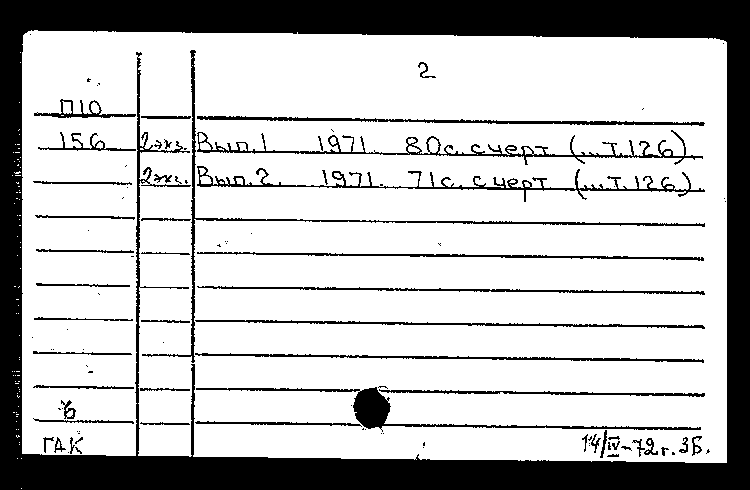 2
П10
156 2экз. Вып.1 1971. 80с. с черт (...Т.126).
2экз. Вып.2. 1971. 71с. с черт (...Т.126).
б
ГАК 14/IV-72г. ЗБ.